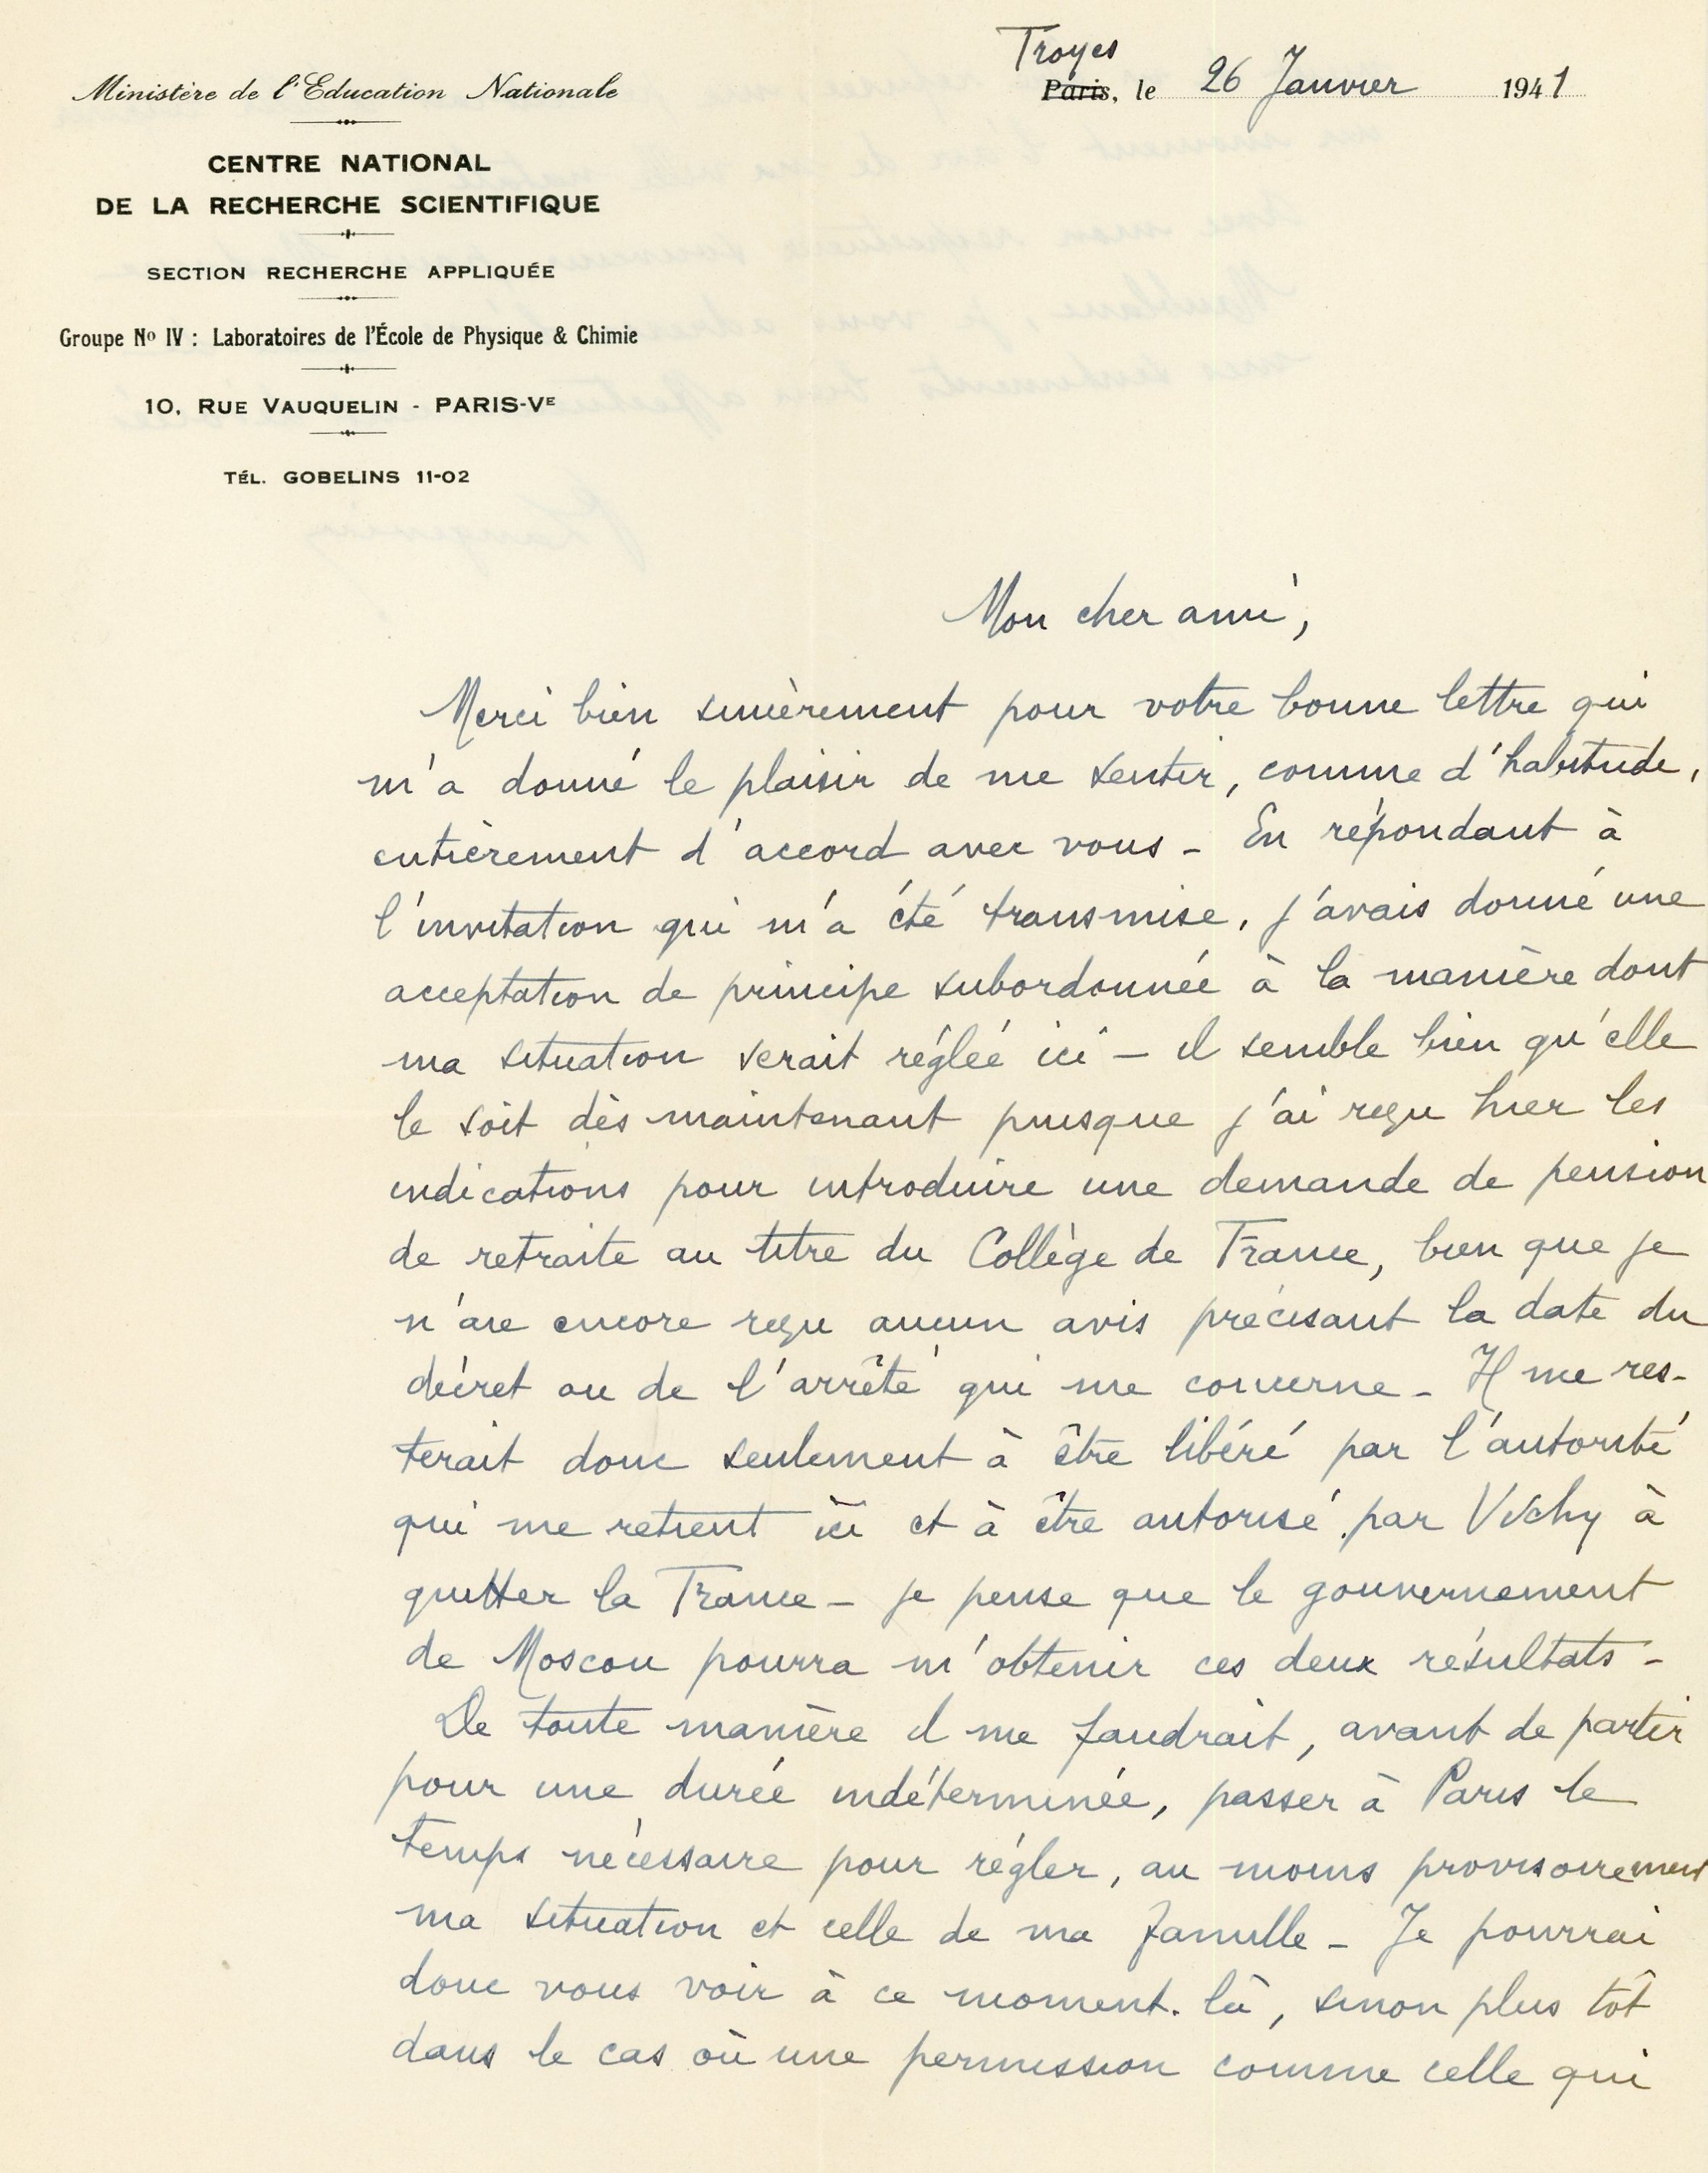 Ministère de l'Education Nationale
CENTRE NATIONAL
DE LA RECHERCHE SCIENTIFIQUE
SECTION RECHERCHE APPLIQUÉE
Groupe No IV : Laboratoires de l'École de Physique & Chimie
10, RUE VAUQUELIN - PARIS-VE
TÉL. GOBELINS 11-02
Troyes
Paris, le 26 Janvier 1941
Mon cher ami,
Merci bien sincèrement pour votre bonne lettre qui
m'a donné le plaisir de me sentir, comme d'habitude,
entièrement d'accord avec vous - En répondant à
l'invitation qui m'a été transmise, j'avais donné une
acceptation de principe subordonnée à la manière dont
ma situation serait réglée ici - il semble bien qu'elle
le soit dès maintenant puisque j'ai reçu hier les
indications pour introduire une demande de pension
de retraite au titre du Collège de France, bien que je
n'aie encore reçu aucun avis précisant la date du
décret ou de l'arrêté qui me concerne - Il me res-
terait donc seulement à être libéré par l'autorité
qui me retient ici et à être autorisé par Vichy à
quitter la France - je pense que le gouvernement
de Moscou pourra m'obtenir ces deux résultats -
De toute manière il me faudrait, avant de partir
pour une durée indéterminée, passer à Paris le
temps nécessaire pour régler, au moins provisoirement
ma situation et celle de ma famille - Je pourrai
donc vous voir à ce moment-là, sinon plus tôt
dans le cas où une permission comme celle qui